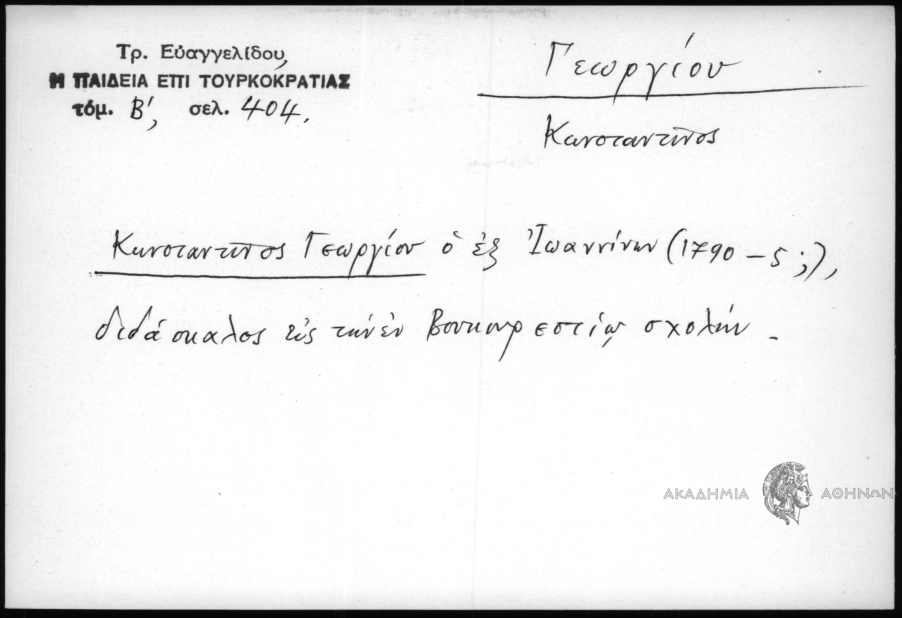 Τρ. Εὐαγγελίδου,
Η ΠΑΙΔΕΙΑ ΕΠΙ ΤΟΥΡΚΟΚΡΑΤΙΑΣ
τόμ. Β', σελ. 404.
Γεωργίου
Κωνσταντῖνος
Κωνσταντῖνος Γεωργίου ὁ ἐξ Ἰωαννίνων (1790 – 5 ;),
διδάσκαλος εἰς τὴν ἐν Βουκουρεστίῳ σχολήν.
ΑΚΑΔΗΜΙΑ ΑΘΗΝΩΝ